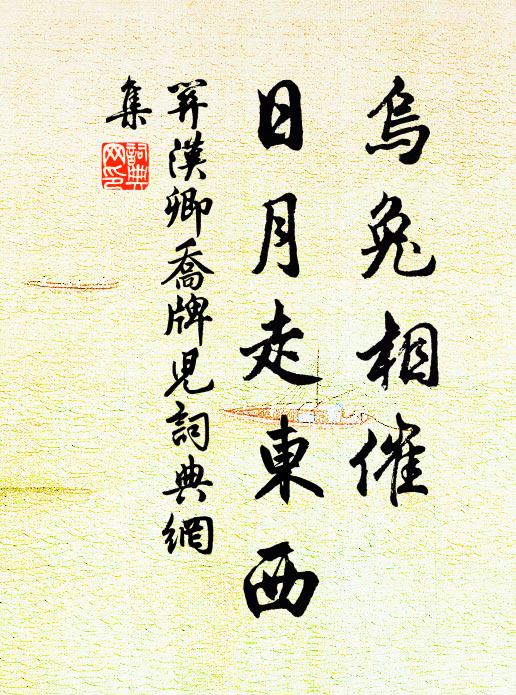 烏兔相催
日月走東西
關漢卿喬牌兒詞典網
集
詞典
网印